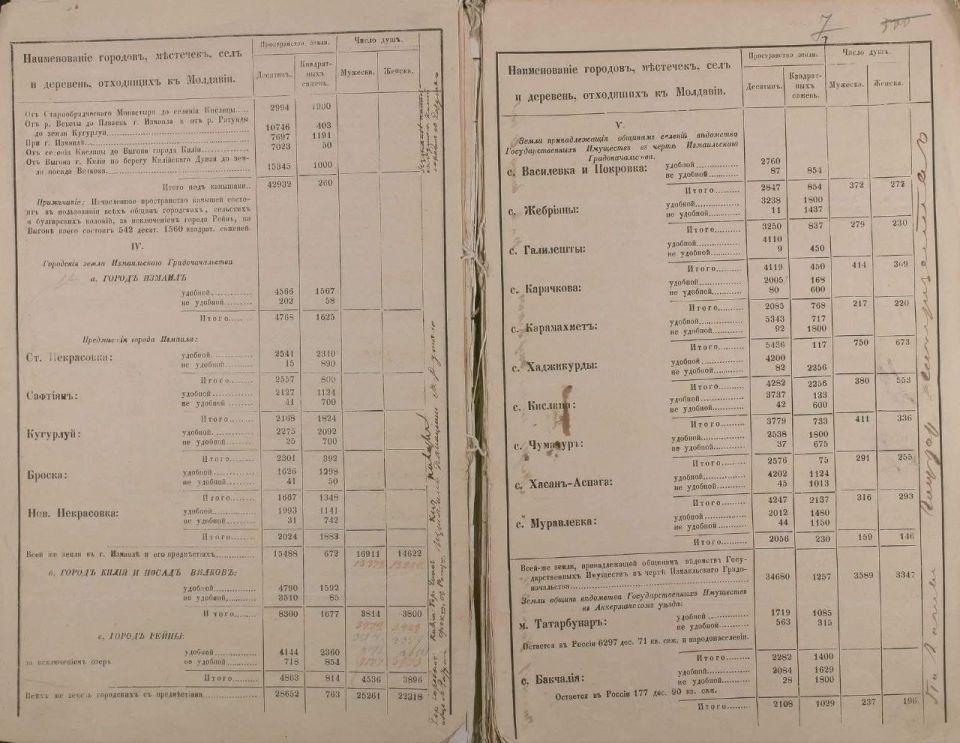 Наименованіе городовъ, мѣстечекъ, селъ
и деревень, отходящихъ къ Молдавіи.
Пространство земли.
Число душъ.
Десятинъ.
Квадратныхъ саженъ.
Мужеска.
Женска.
Отъ Старообрадческаго Монастыря до селенія Кислицы.... 2994 1900
Отъ р. Векеты до Плавень г. Измаила и отъ р. Рапуды
до земли Кугурлуи........ 10746 403
При г. Измаилѣ........ 7697 1191
Отъ селенія Кислицы до Выгона города Килія........ 7023 50
Отъ Выгона г. Килія по берегу Килійскаго Дуная до зем-
ли посада Вилкова........ 15345 1000
Итого подъ камышами... 42932 260
Примѣчаніе: Исчисленное пространство камышей состо-
итъ въ пользованіи всѣхъ общинъ городскихъ, сельскихъ
и булгарскихъ колоній, за исключеніемъ города Рейни, на
Выгонѣ коего состоитъ 542 десят. 1560 квадрат. саженей.
IV.
Городскія земли Измаильскаго Градоначальства
а. ГОРОДЪ ИЗМАИЛЪ
удобной........ 4566 1567
не удобной........ 202 58
Итого........ 4768 1625
Предмѣстія города Измаила:
Ст. Некрасовка:
удобной........ 2541 2310
не удобной........ 15 890
Итого........ 2557 800
Сафтіянъ:
удобной........ 2127 1124
не удобной........ 41 700
Итого........ 2168 1824
Кугурлуй:
удобной........ 2275 2092
не удобной........ 25 700
Итого........ 2301 392
Броска:
удобной........ 1626 1298
не удобной........ 41 50
Итого........ 1667 1348
Нов. Некрасовка:
удобной........ 1993 1141
не удобной........ 31 742
Итого........ 2024 1883
Всей же земли въ г. Измаилѣ и его предмѣстіяхъ........ 15488 672 16911 14622
в. ГОРОДЪ КИЛІЯ И ПОСАДЪ ВИЛКОВЪ:
удобной........ 4790 1592
не удобной........ 3510 85
Итого........ 8300 1677 3814 3800
с. ГОРОДЪ РЕЙНЫ:
удобной........ 4144 2360
за исключеніемъ озеръ
не удобной........ 718 854
Итого........ 4863 814 4536 3896
Всѣхъ же земель городскихъ съ предмѣстіями........ 28652 763 25261 22318
7
Наименованіе городовъ, мѣстечекъ, селъ
и деревень, отходящихъ къ Молдавіи.
Пространство земли.
Число душъ.
Десятинъ.
Квадратныхъ саженъ.
Мужеска.
Женска.
V.
Земли принадлежащія общинамъ селеній вѣдомства
Государственныхъ Имуществъ въ чертѣ Измаильскаго
Градоначальства.
с. Василевка и Покровка:
удобной........ 2760
не удобной........ 87 854
Итого........ 2847 854 372 272
с. Жебріяны:
удобной........ 3238 1800
не удобной........ 11 1437
Итого........ 3250 837 279 230
с. Галилешты:
удобной........ 4110
не удобной........ 9 450
Итого........ 4119 450 414 369
с. Карячкова:
удобной........ 2005 168
не удобной........ 80 600
Итого........ 2085 768 217 220
с. Карамахметъ:
удобной........ 5343 717
не удобной........ 92 1800
Итого........ 5436 117 750 673
с. Хаджикурды:
удобной........ 4200
не удобной........ 82 2256
Итого........ 4282 2256 380 553
с. Кислица:
удобной........ 3737 133
не удобной........ 42 600
Итого........ 3779 733 411 336
с. Чумашуръ:
удобной........ 2538 1800
не удобной........ 37 675
Итого........ 2576 75 291 255
с. Хасанъ-Аспага:
удобной........ 4202 1124
не удобной........ 45 1013
Итого........ 4247 2137 316 293
с. Муравлевка:
удобной........ 2012 1480
не удобной........ 44 1150
Итого........ 2056 230 159 146
Всей-же земли, принадлежащей общинамъ вѣдомствъ Госу-
дарственныхъ Имуществъ въ чертѣ Измаильскаго Градо-
начальства........ 34680 1257 3589 3347
Земли общинъ вѣдомства Государственныхъ Имуществъ
въ Аккерманскомъ уѣздѣ:
м. Татарбунаръ:
удобной........ 1719 1085
не удобной........ 563 315
Остается въ Россіи 6297 дес. 71 кв. саж. и народонаселеніи.
Итого........ 2282 1400
с. Бакчалія:
удобной........ 2084 1629
не удобной........ 28 1800
Остается въ Россіи 177 дес. 90 кв. саж.
Итого........ 2108 1029 237 196